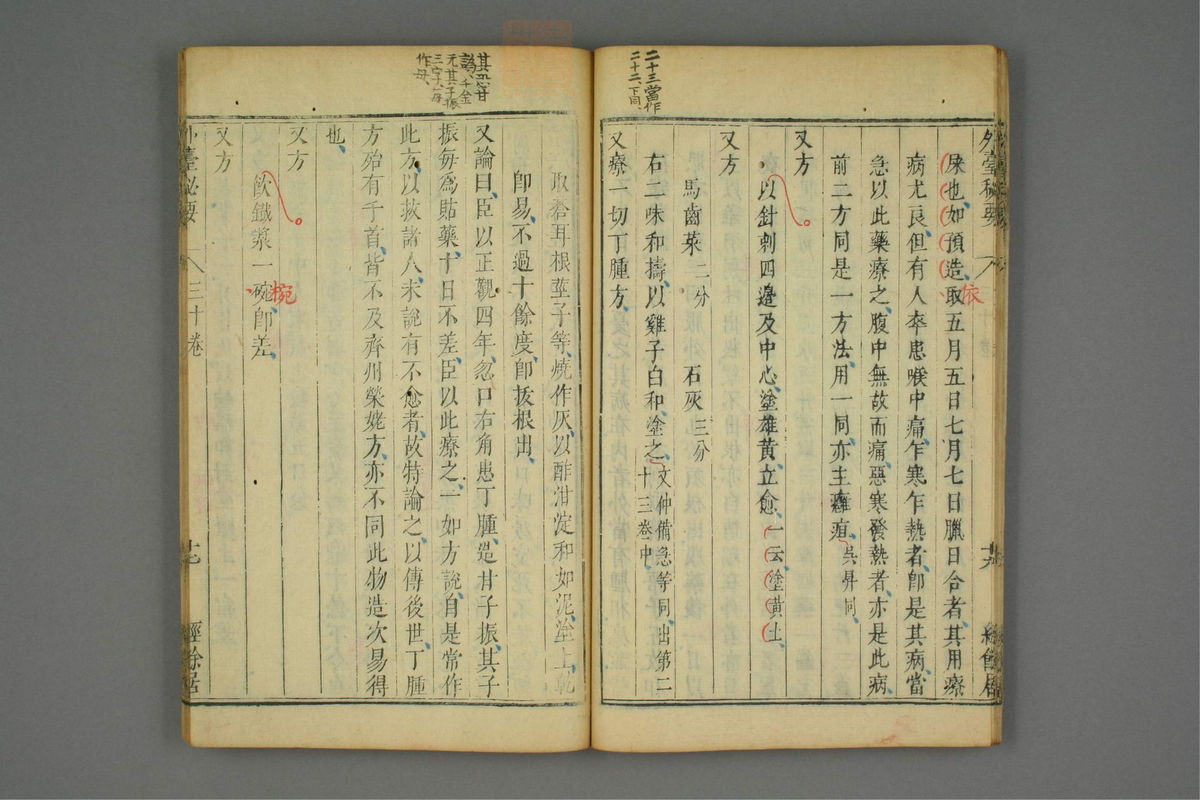 二十三當作
二十二、下同、
外臺秘要
屎也、如預造、取五月五日七月七日臘日合者、其用療
依
病尤良、但有人卒患喉中痛、乍寒乍熱者、卽是其病、當
急以此藥療之、腹中無故而痛、惡寒發熱者、亦是此病、
前二方同是一方法、用一同、亦主癰疽、吳昇同、
又方
以針刺四邊及中心、塗雄黃立愈、一云塗黃土
又方
馬齒菜二分 石灰三分
右二味和擣、以雞子白和、塗之、文仲備急等同、出第二
十三卷中、
又療一切丁腫方、
其恐甘
譌、千金
无其子振
三字、每
作母、
取蒼耳根莖子等、燒作灰、以酢泔淀和如泥、塗上、乾
卽易、不過十餘度、卽拔根出、
又論曰、臣以正觀四年、忽口右角患丁腫、造甘子振、其子
振每爲貼藥、十日不差、臣以此療之、一如方說、自是常作
此方、以救諸人、未說有不愈者、故特論之、以傳後世、丁腫
方殆有千首、皆不及齊州榮姥方、亦不同此物造次易得
也、
又方
飲鐵漿一碗、卽差、
椀
又方
外臺秘要 三十卷 經餘居